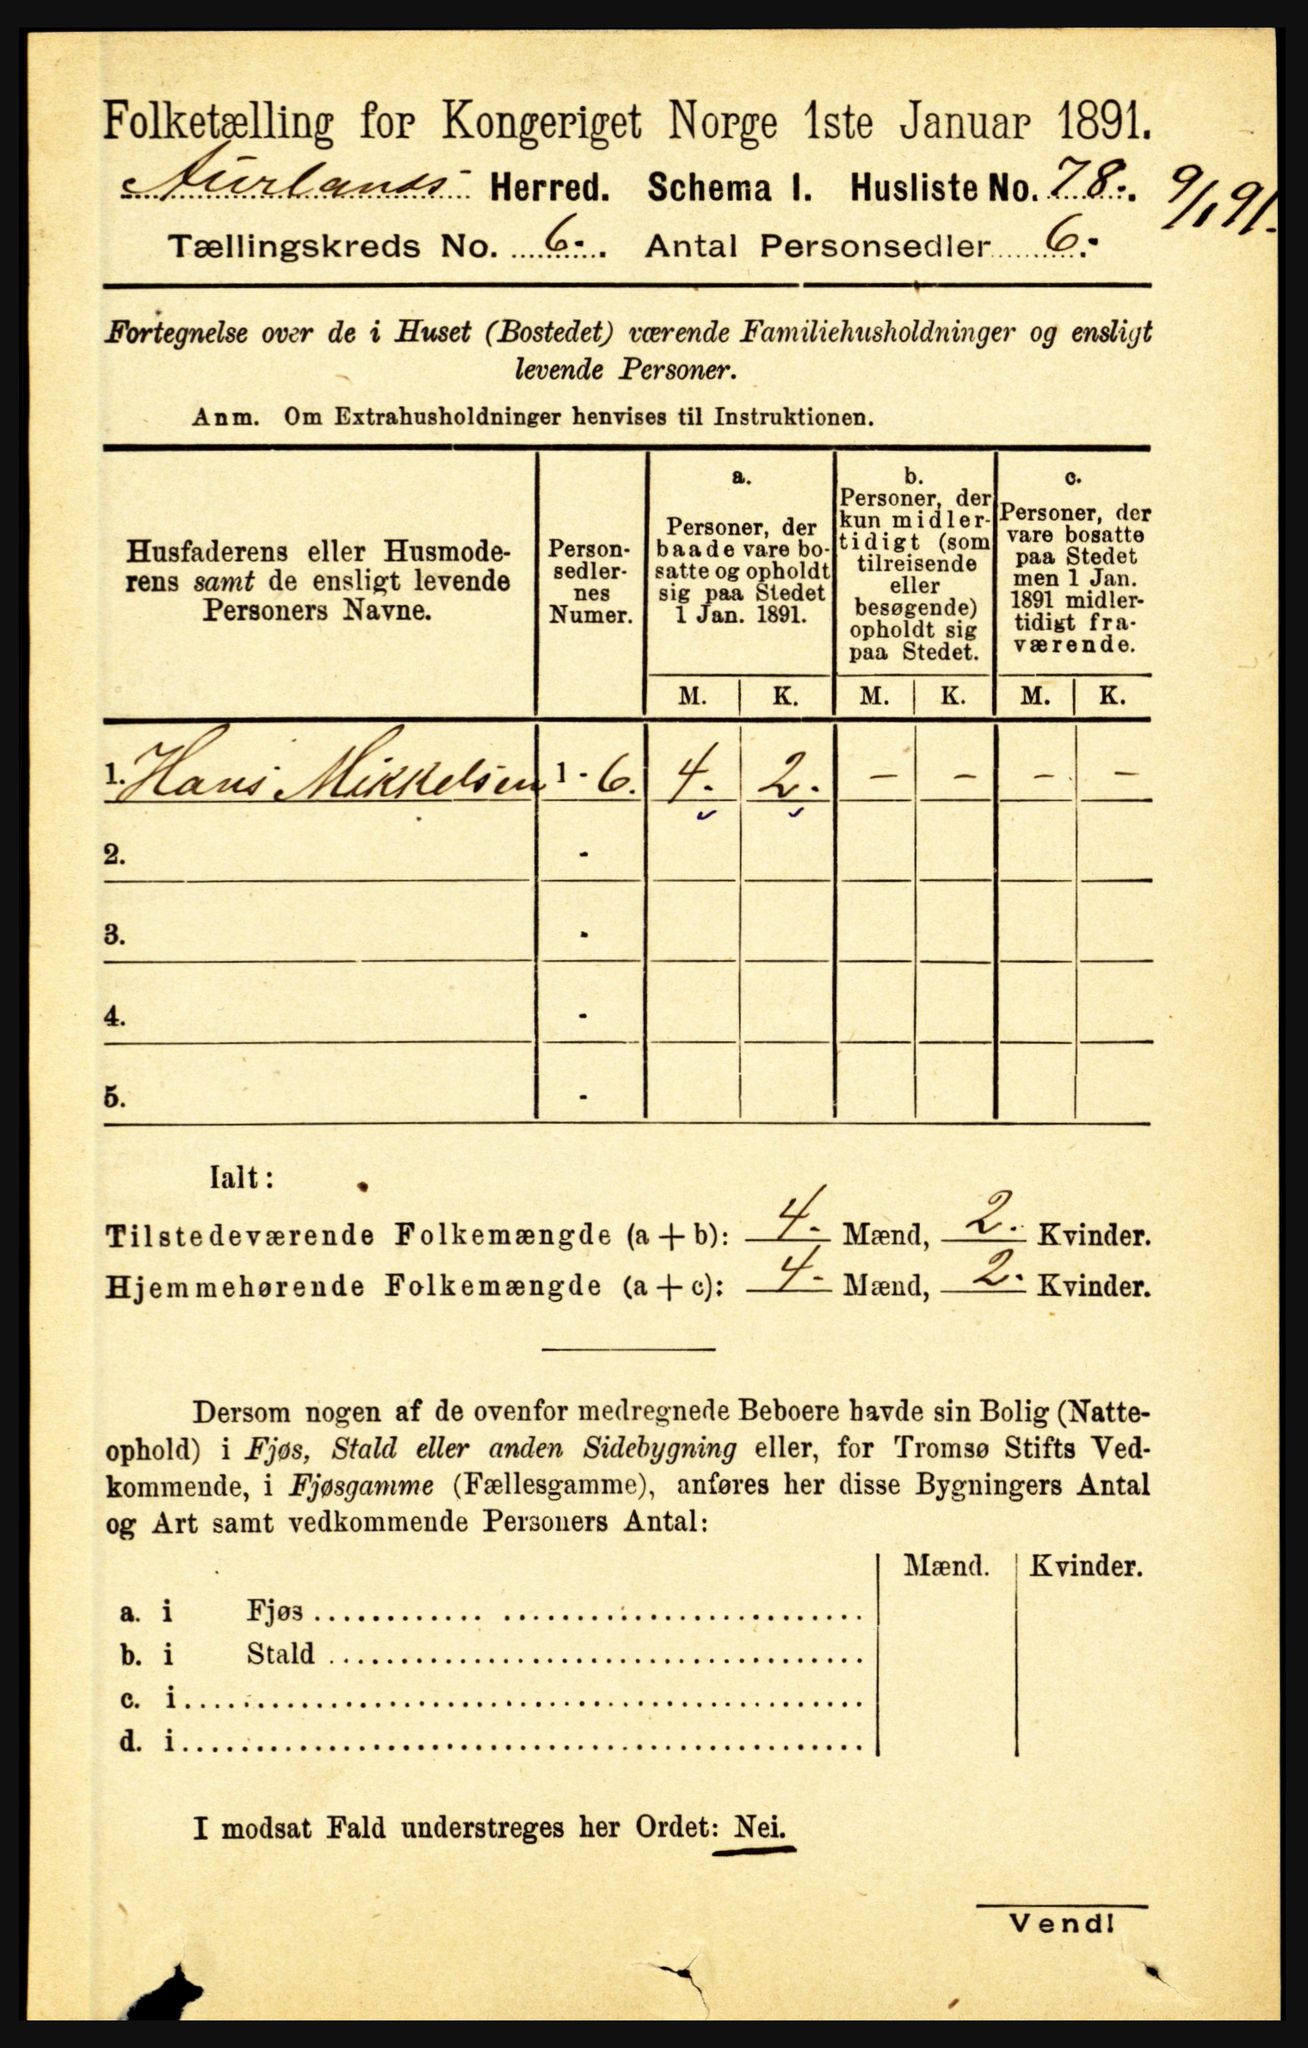 Folketælling for Kongeriget Norge 1ste Januar 1891.
Aurlands Herred. Schema I. Husliste No. 78.
9/1 91.
Tællingskreds No. 6. Antal Personsedler 6.
Fortegnelse over de i Huset (Bostedet) værende Familiehusholdninger og ensligt
levende Personer.
Anm. Om Extrahusholdninger henvises til Instruktionen.
Husfaderens eller Husmode-
rens samt de ensligt levende
Personers Navne.
Person-
sedler-
nes
Numer.
a.
Personer, der
baade vare bo-
satte og opholdt
sig paa Stedet
1 Jan. 1891.
b.
Personer, der
kun midler-
tidigt (som
tilreisende
eller
besøgende)
opholdt sig
paa Stedet.
c.
Personer, der
vare bosatte
paa Stedet
men 1 Jan.
1891 midler-
tidigt fra-
værende.
M. K. M. K. M. K.
1. Hans Mikkelsen 1 - 6. 4. 2. - - - -
2. -
3. -
4. -
5. -
Ialt:
Tilstedeværende Folkemængde (a + b): 4. Mænd, 2. Kvinder.
Hjemmehørende Folkemængde (a + c): 4. Mænd, 2. Kvinder.
Dersom nogen af de ovenfor medregnede Beboere havde sin Bolig (Natte-
ophold) i Fjøs, Stald eller anden Sidebygning eller, for Tromsø Stifts Ved-
kommende, i Fjøsgamme (Fællesgamme), anføres her disse Bygningers Antal
og Art samt vedkommende Personers Antal:
Mænd. Kvinder.
a. i Fjøs
b. i Stald
c. i
d. i
I modsat Fald understreges her Ordet: Nei.
Vend!